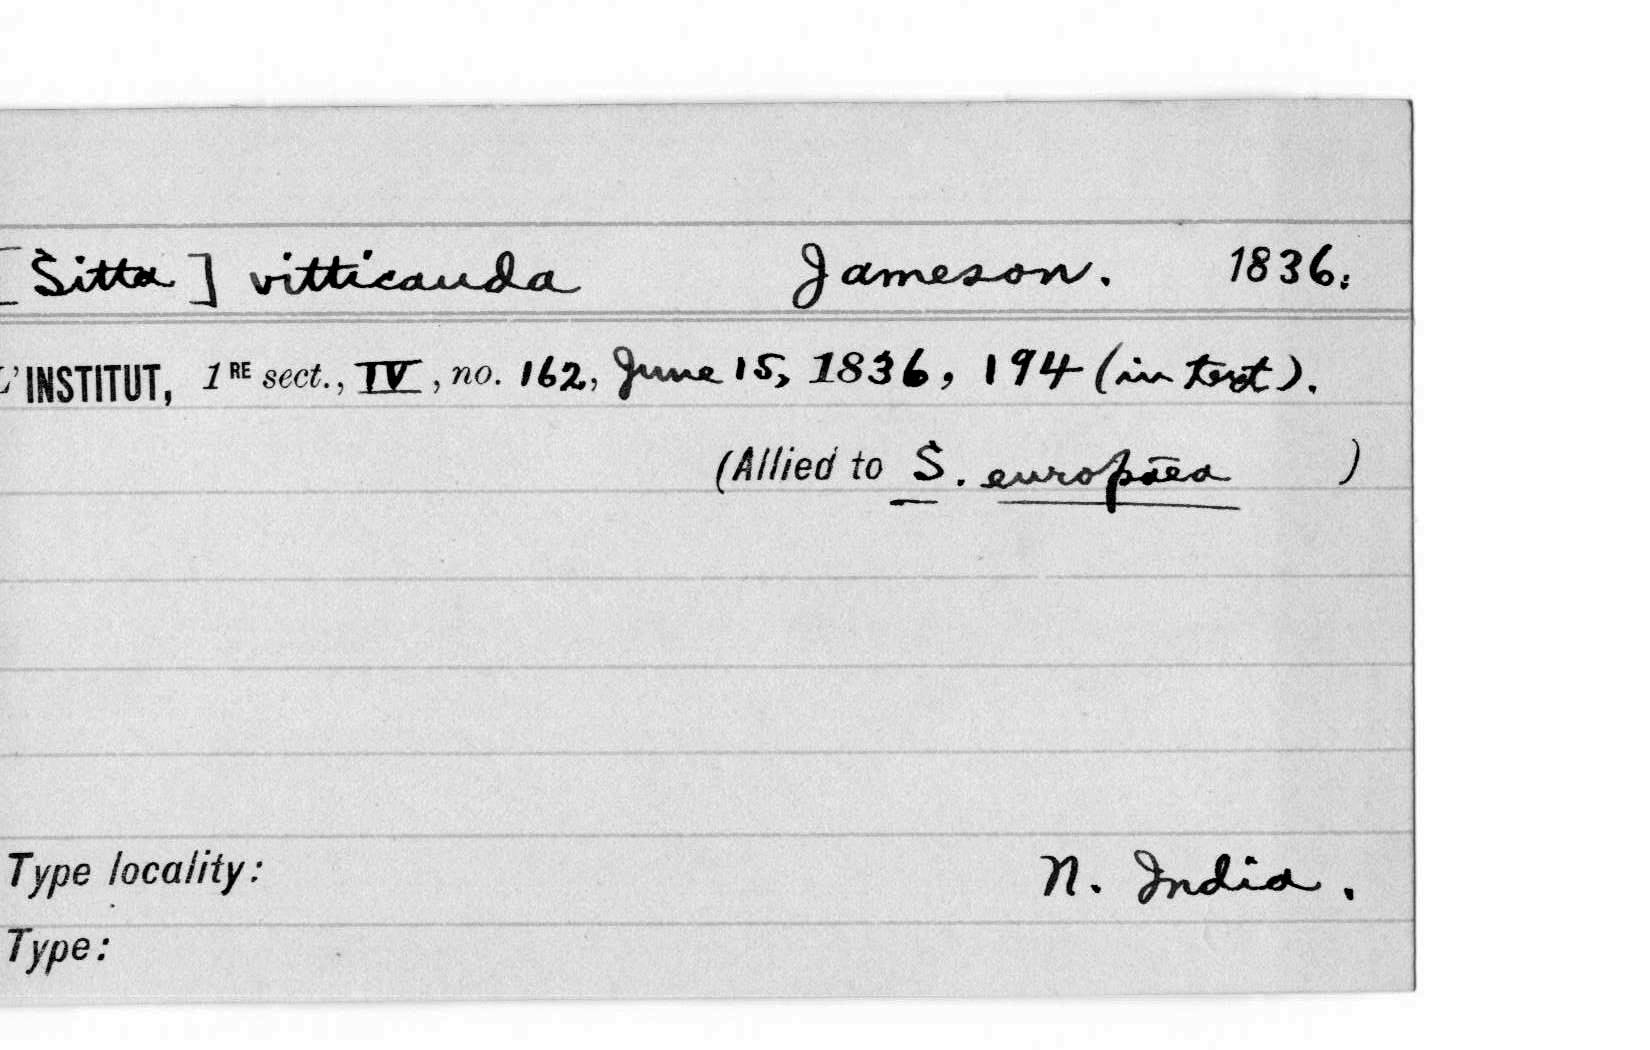 [Sitta] vitticauda Jameson. 1836.
L'INSTITUT, 1RE sect., IV, no. 162, June 15, 1836, 194 (in text).
(Allied to S. europæa )
Type locality: N. India.
Type: